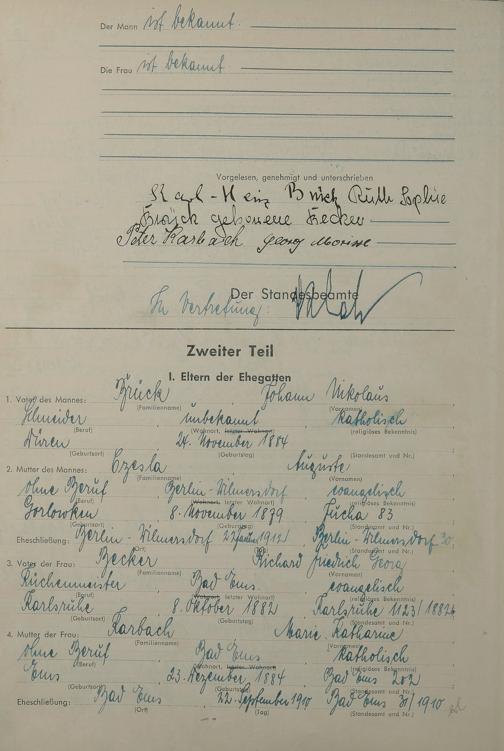 Der Mann ist bekannt.
Die Frau ist bekannt.
Vorgelesen, genehmigt und unterschrieben
Karl-Heinz Brück Ruth Sophie
Brück geborene Becker
Peter Karbach Georg
Der Standesbeamte
In Vertretung:
Zweiter Teil
I. Eltern der Ehegatten
1. Vater des Mannes: Brück Johann Nikolaus
(Familienname) (Vornamen)
Schneider unbekannt katholisch
(Beruf) (Wohnort, letzter Wohnort) (religiöses Bekenntnis)
Düren 24. November 1884
(Geburtsort) (Geburtstag) (Standesamt und Nr.)
2. Mutter des Mannes: Czesla Auguste
(Familienname) (Vornamen)
ohne Beruf Berlin-Wilmersdorf evangelisch
(Beruf) (Wohnort, letzter Wohnort) (religiöses Bekenntnis)
Gorlowken 8. November 1879 Jucha 83
(Geburtsort) (Geburtstag) (Standesamt und Nr.)
Eheschließung: Berlin-Wilmersdorf 22. 1912 Berlin-Wilmersdorf 30
(Ort) (Tag) (Standesamt und Nr.)
3. Vater der Frau: Becker Richard Friedrich Georg
(Familienname) (Vornamen)
Küchenmeister Bad Ems evangelisch
(Beruf) (Wohnort, letzter Wohnort) (religiöses Bekenntnis)
Karlsruhe 8. Oktober 1882 Karlsruhe 1123/1882
(Geburtsort) (Geburtstag) (Standesamt und Nr.)
4. Mutter der Frau: Karbach Marie Katharine
(Familienname) (Vornamen)
ohne Beruf Bad Ems katholisch
(Beruf) (Wohnort, letzter Wohnort) (religiöses Bekenntnis)
Ems 23. Dezember 1884 Bad Ems 202
(Geburtsort) (Geburtstag) (Standesamt und Nr.)
Eheschließung: Bad Ems 22. September 1910 Bad Ems 30/1910
(Ort) (Tag) (Standesamt und Nr.)